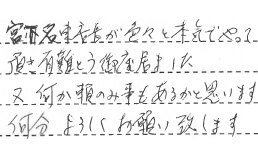 宮下名 店長が色々と本気でやって
頂き有難とう御座居ました
又 何か頼のみ事もあるかと思います
何分 よろしくお願い致します